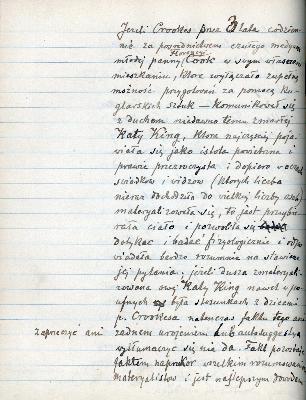 Jeżeli Crookes przez 3 lata codzien-
nie za pośrednictwem czułego medyum
młodej panny Florencyi Cook w swym własnem
mieszkaniu, które wyłączało zupełną
możność przygotowań za pomocą ku-
glarskich sztuk — komunikował się
z duchem niedawno temu zmarłej
Katy King, która najczęściej poja-
wiała się jako istota powietrzna i
prawie przezroczysta i dopiero w oczach
świadków i widzów (których liczba
nieraz dochodziła do wielkiej liczby osób)
materyalizowała się, to jest przybie-
rała ciało i pozwoliła się
dotykać i badać fizyologicznie i odpo-
wiadała bardzo rozumnie na stawiane
jej pytania, jeżeli dusza zmateryali-
zowana owej Katy King nawet w po-
ufnych była stosunkach z dziećmi
p. Crookesa natenczas faktu tego ani
zaprzeczyć ani
żadnem urojeniem lub autosuggestyą
wytłumaczyć się nie da. Fakt pozostaje
faktem naprzekór wszelkim rozumowaniom
materyalistów i jest najlepszym dowodem